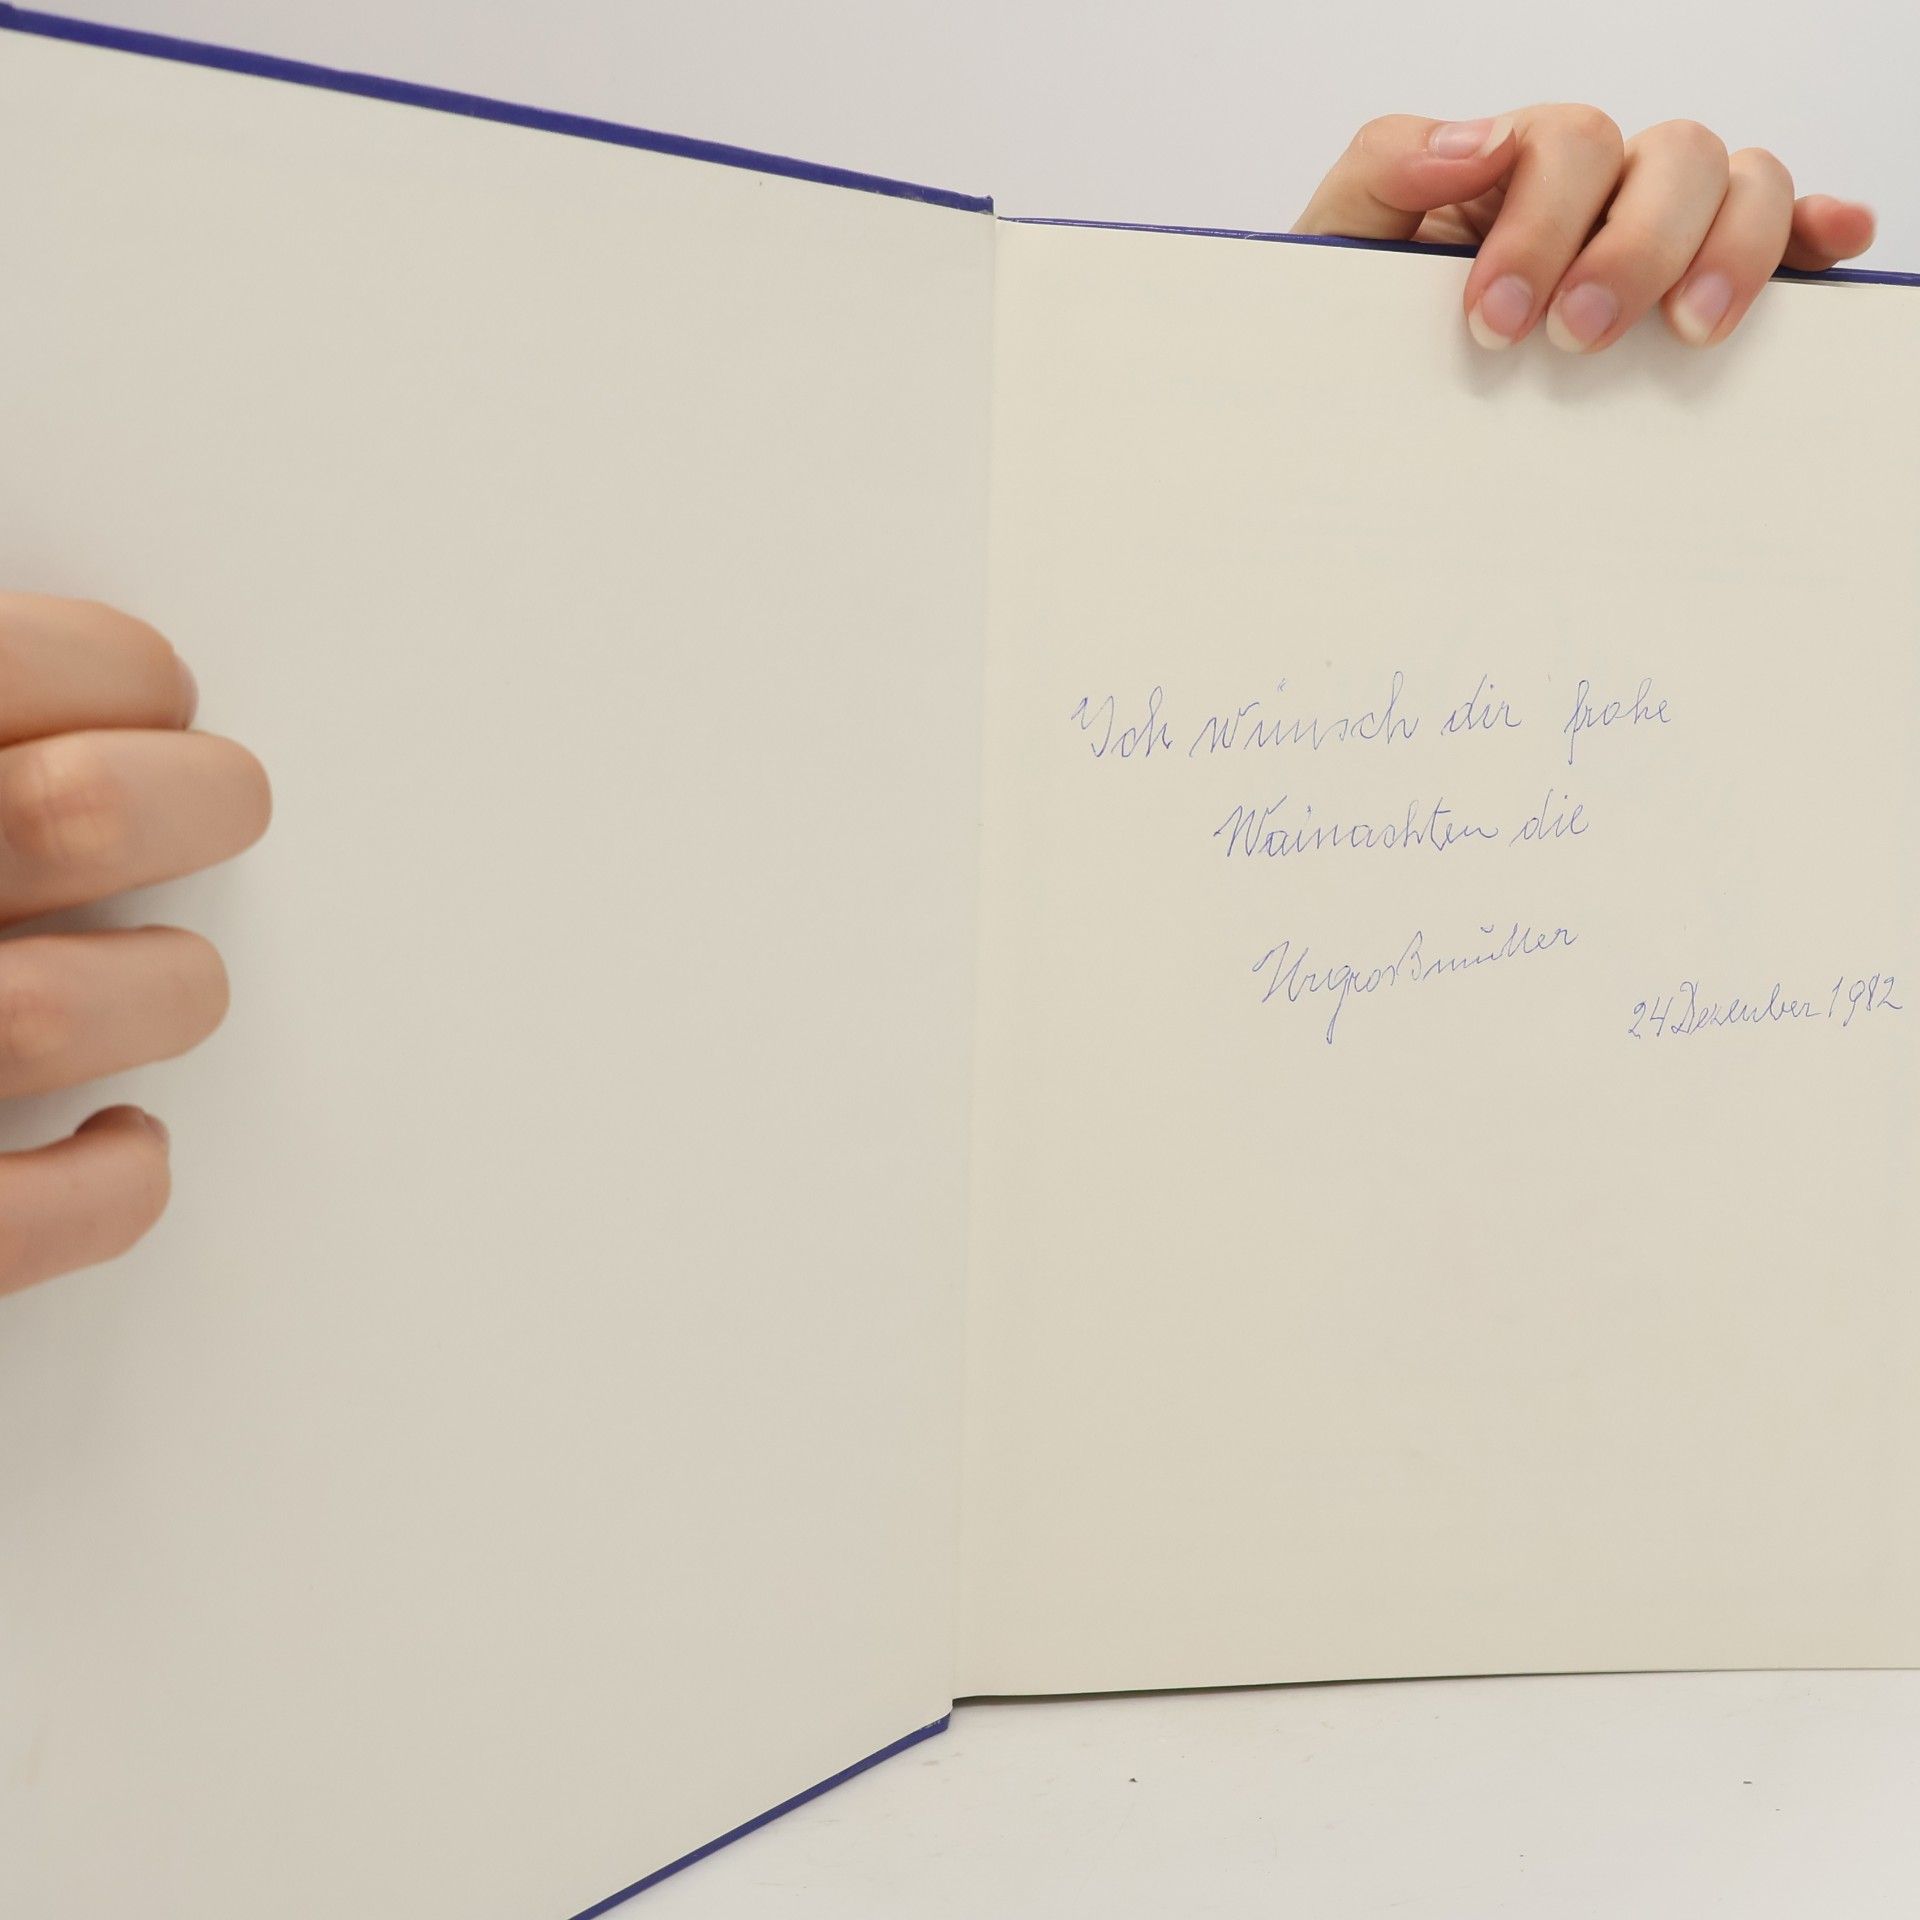 Ich wünsch dir frohe
Wainachten die
Urgroßmutter
24 Dezember 1982